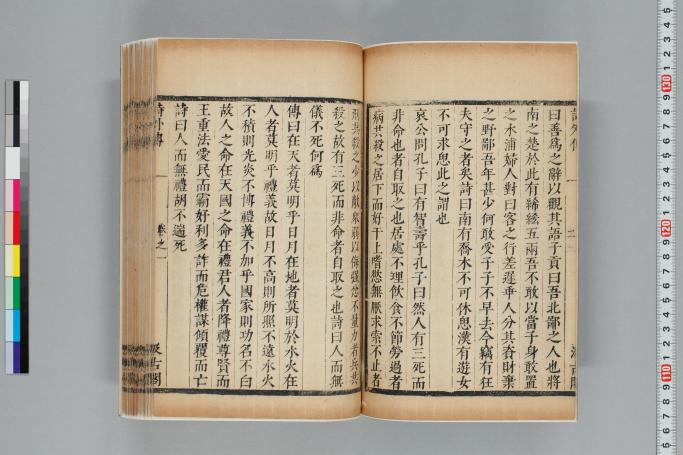 曰善爲之辭以觀其語子貢曰吾北鄙之人也將
南之楚於此有絺綌五兩吾不敢以當子身敢置
之水浦婦人對曰客之行差遲乖人分其資財棄
之野鄙吾年甚少何敢受子子不早去今竊有狂
夫守之者矣詩曰南有喬木不可休息漢有游女
不可求思此之謂也
哀公問孔子曰有智壽乎孔子曰然人有三死而
非命也者自取之也居處不理飲食不節勞過者
病共殺之居下而好干上嗜慾無厭求索不止者
刑共殺之少以敵衆弱以侮強忿不量力者兵共
殺之故有三死而非命者自取之也詩曰人而無
儀不死何爲
傳曰在天者莫明乎日月在地者莫明於水火在
人者莫明乎禮義故日月不高則所照不遠水火
不積則光炎不博禮義不加乎國家則功名不白
故人之命在天國之命在禮君人者降禮尊賢而
王重法愛民而霸好利多詐而危權謀傾覆而亡
詩曰人而無禮胡不遄死
詩外傳
卷之一
汲古閣
130
120
110